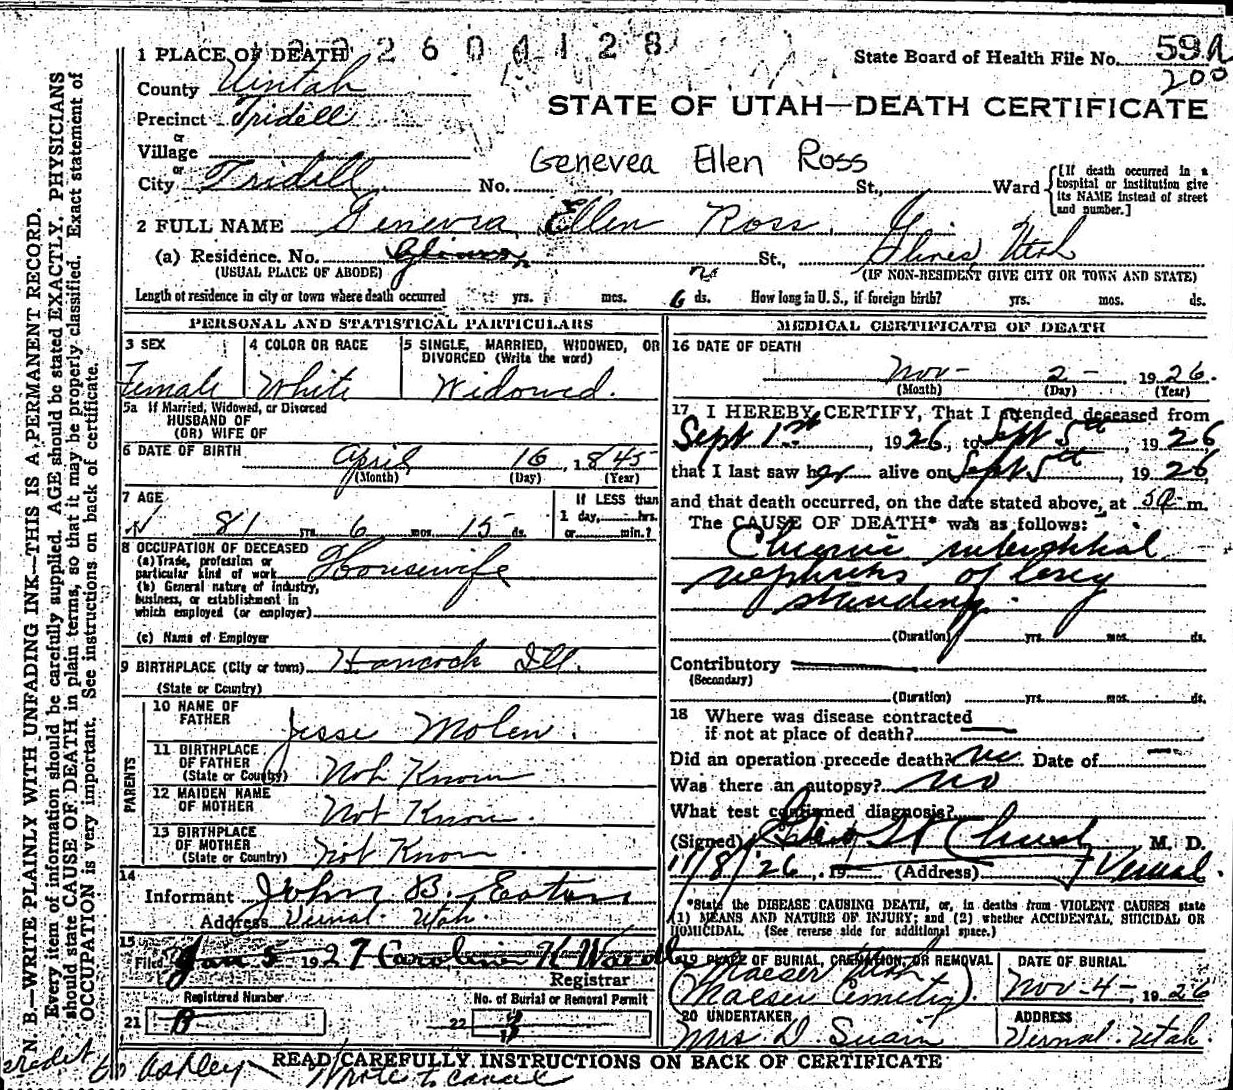 2 6 0 4 1 2 8
State Board of Health File No. 59
200
1 PLACE OF DEATH
County Uintah
STATE OF UTAH—DEATH CERTIFICATE
Precinct Tridell
or
Village
or
Genevea Ellen Ross
City Tridell No. St., Ward [If death occurred in a hospital or institution give its NAME instead of street and number.]
2 FULL NAME Genevra Ellen Ross
(a) Residence. No. St., Utah
(USUAL PLACE OF ABODE) (IF NON-RESIDENT GIVE CITY OR TOWN AND STATE)
Length of residence in city or town where death occurred yrs. mos. 6 ds. How long in U. S., if foreign birth? yrs. mos. ds.
PERSONAL AND STATISTICAL PARTICULARS
3 SEX
Female
4 COLOR OR RACE
White
5 SINGLE, MARRIED, WIDOWED, OR
DIVORCED (Write the word)
Widowed.
5a If Married, Widowed, or Divorced
HUSBAND OF
(OR) WIFE OF
6 DATE OF BIRTH April 16, 1845
(Month) (Day) (Year)
7 AGE
81 yrs. 6 mos. 15 ds.
If LESS than
1 day, hrs.
or min.?
8 OCCUPATION OF DECEASED
(a) Trade, profession or
particular kind of work Housewife
(b) General nature of industry,
business, or establishment in
which employed (or employer)
(c) Name of Employer
9 BIRTHPLACE (City or town) Hancock Ill.
(State or Country)
PARENTS
10 NAME OF
FATHER Jesse Molen.
11 BIRTHPLACE
OF FATHER
(State or Country) Not Known
12 MAIDEN NAME
OF MOTHER Not Known.
13 BIRTHPLACE
OF MOTHER
(State or Country) Not Known
14
Informant John B. Eaton
Address Vernal. Utah.
15
Filed Jan 5 1927 Caroline K
Registrar
Registered Number No. of Burial or Removal Permit
21 B 22
MEDICAL CERTIFICATE OF DEATH
16 DATE OF DEATH
Nov- 2-, 1926.
(Month) (Day) (Year)
17 I HEREBY CERTIFY, That I attended deceased from
Sept 1st, 1926, to Sept 5th, 1926
that I last saw her alive on Sept 5th, 1926
and that death occurred, on the date stated above, at m.
The CAUSE OF DEATH* was as follows:
Chronic interstitial
nephritis of long
standing.
(Duration) yrs. mos. ds.
Contributory
(Secondary)
(Duration) yrs. mos. ds.
18 Where was disease contracted
if not at place of death?
Did an operation precede death? no Date of
Was there an autopsy? no
What test confirmed diagnosis?
(Signed) M. D.
11/8/26, 19 (Address) Vernal.
*State the DISEASE CAUSING DEATH, or, in deaths from VIOLENT CAUSES state
(1) MEANS AND NATURE OF INJURY; and (2) whether ACCIDENTAL, SUICIDAL OR
HOMICIDAL. (See reverse side for additional space.)
19 PLACE OF BURIAL, CREMATION, OR REMOVAL
Maeser Utah
(Maeser Cemetery).
DATE OF BURIAL
Nov-4-, 1926
20 UNDERTAKER
Mrs D. Swain
ADDRESS
Vernal. Utah.
READ CAREFULLY INSTRUCTIONS ON BACK OF CERTIFICATE
credit to Ashley
Wrote to
N. B.—WRITE PLAINLY WITH UNFADING INK—THIS IS A PERMANENT RECORD.
Every item of information should be carefully supplied. AGE should be stated EXACTLY. PHYSICIANS
should state CAUSE OF DEATH in plain terms, so that it may be properly classified. Exact statement of
OCCUPATION is very important. See instructions on back of certificate.